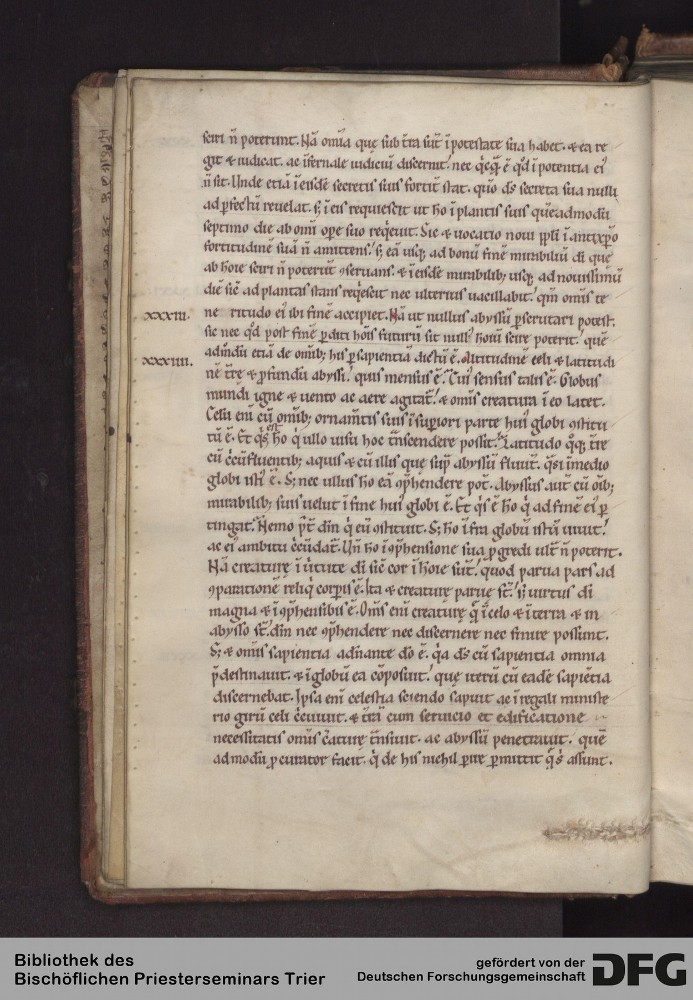 sciri n̄ poterunt. Nā om̄ia que sub t̄ra sūt ī potestate sua habet. & ea re
git & iudicat. ac īfernale iudiciū discernit. nec q̇cq̄ ē qd̄ ī potentia ei᾽
n̄ sit. Unde etiā ī eisdē secretis suis fortit̄ stat. quō ds̄ secreta sua nulli
ad ꝑfectū reuelat. sꝫ ī eis requiescit ut hō ī plantis suis quēadmodū
septimo die ab om̄i oꝑe suo reqeuit. Sic & uocatio noui ppl̄i ī antixp̄o
fortitudinē suā n̄ amittens. sꝫ eā usqꝫ ad bonū finē mirabiliū di que
ab hoīe sciri n̄ poterūt ꝯseruans. & ī eisdē mirabilibꝫ usqꝫ ad nouissimū
diē sic̄ ad plantas stans reqescit nec ulterius uacillabit. qm̄ omīs te
XXXIII. ne ritudo ei᾽ ibi finē accipiet. Nā ut nullus abyssū ꝑscrutari potest.
sic nec qd̄ post finē ꝑditi hoīs futurū sit null᾽ hoīm scire poterit. quē
XXXIIII. admdū etiā de om̄ibꝫ his ꝑ sapientiā dictū ē. Altitudinē celi & latitudi
nē t̄re & ꝓfundū abyssi. quis mensus ē. Cui᾽ sensus talis ē. Globus
mundi igne & uento ac aere agitat᾽. & omīs creatura ī eo latet.
Celū eni cū om̄ibꝫ ornam̄tis suis ī supiori parte hui᾽ globi ꝯstitu
tū ē. Et q̇s ē hō q̇ ullo uisu hoc t̄nscendere possit. Latitudo qꝫ t̄re
cū c̄cūfluentibꝫ aquis & cū illis que suꝑ abyssū fluūt. q̇si ī medio
globi isti᾽ ē. Sꝫ nec ullus hō eā ꝯp̄hendere pot̄. Abyssus aut̄ cū oībꝫ
mirabilibꝫ suis uelut ī fine hui᾽ globi ē. Et q̇s ē hō q̇ ad finē ei᾽ ꝑ
tingat. Nemo p̄t dīn q̇ eū ꝯstituit. Sꝫ hō īfra globū istū uiuit.
ac ei᾽ ambitu c̄cūdat᾽. Un̄ hō ī ꝯp̄hensione sua ꝓgredi ult̄ n̄ poterit.
Nā creature ī uirtute di sic̄ cor ī hoīe sūt. quod parua pars ad
ꝯparationē reliq̇ corꝑis ē. Ita & creature parue st̄. sꝫ uirtus di
magna & īꝯp̄hensibil᾽ ē. Om̄s eni creature q̄ ī celo & ī terra & in
abysso st̄. dīn nec ꝯp̄hendere nec discernere nec finire possunt.
Sꝫ & omīs sapientia a dn̄ante dō ē. q̇a ds̄ cū sapientia omnia
p̄destinauit. & ī globū ea cōposuit. que iterū cū eadē sapiētia
discernebat. Ipsa eni celestia sciendo sapuit ac ī regali ministe
rio girū celi c̄cuiuit. & t̄rā cum seruicio et edificatione
necessitatis omīs c̄ature t̄nsiuit. ac abyssū penetrauit. quē
admodū ꝓcurator facit. q̇ de his nichil ꝑire ꝑmittit q̄ s᾽ assunt.
Bibliothek des
Bischöflichen Priesterseminars Trier
gefördert von der
Deutschen Forschungsgemeinschaft
DFG